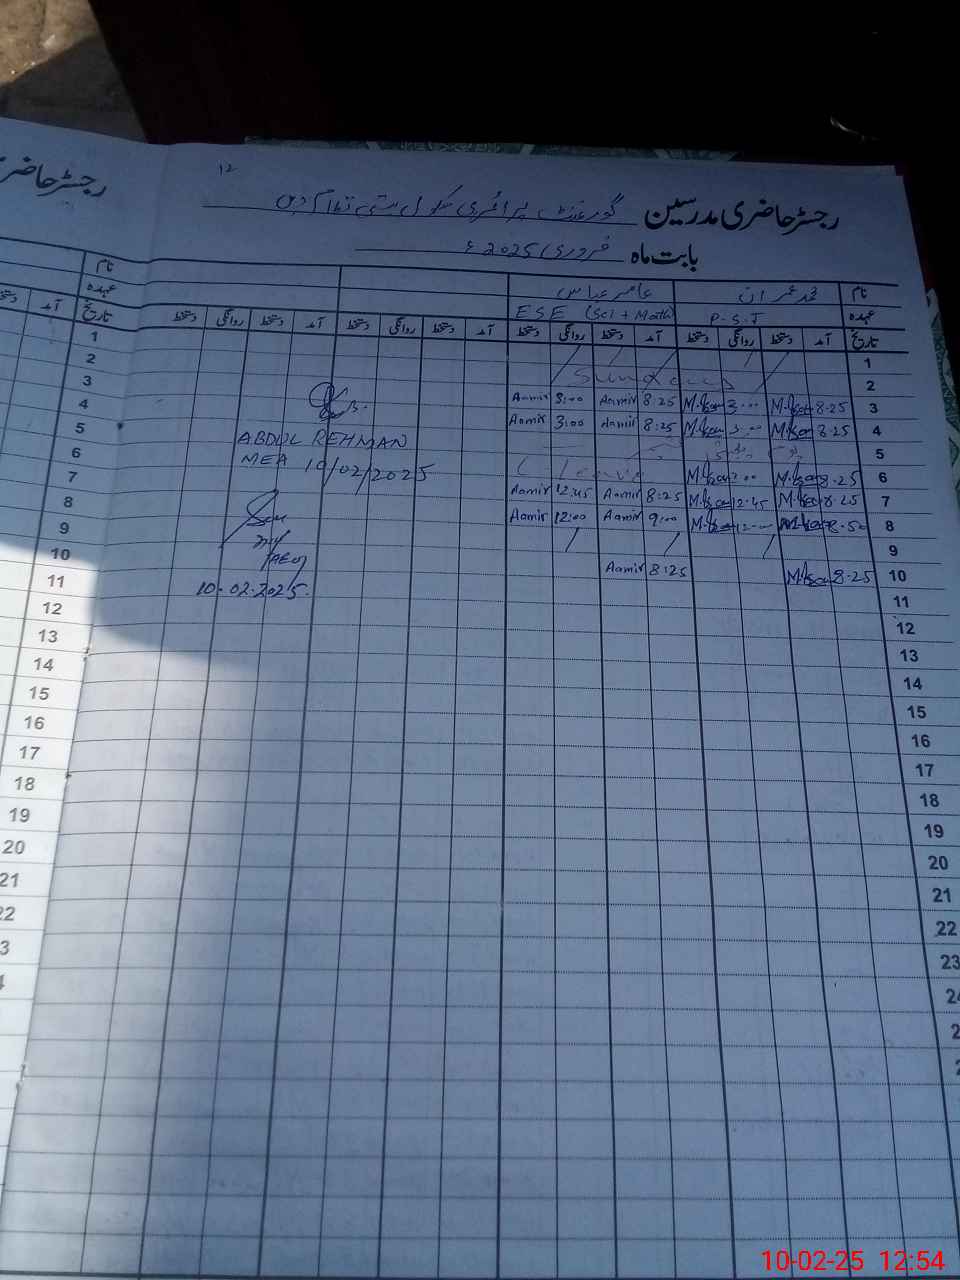 رجسٹر حاضری
۱۲
رجسٹر حاضری مدرسین گورنمنٹ پرائمری سکول بستی
بابت ماہ فروری 2025ء
نام محمد عمران عامر عباس
عہدہ P.S.T ESE (Sci + Math)
تاریخ آمد دستخط روانگی دستخط آمد دستخط روانگی دستخط آمد دستخط روانگی دستخط آمد دستخط روانگی دستخط
1
2 Sunday
3 8.25 3.00 8.25 Aamir 3:00 Aamir
4 8.25 3.00 8:25 Aamir 3:00 Aamir
5
6 8.25 Leave
7 8.25 12.45 8:25 Aamir 12:45 Aamir
8 8.50 9:00 Aamir 12:00 Aamir
9
10 8.25 8:25 Aamir
11
12
13
14
15
16
17
18
19
20
21
22
23
ABDUL REHMAN
MEA 10/02/2025
(AEO)
10.02.2025.
نام
عہدہ
تاریخ آمد
1
2
3
4
5
6
7
8
9
10
11
12
13
14
15
16
17
18
19
20
21
22
10-02-25 12:54